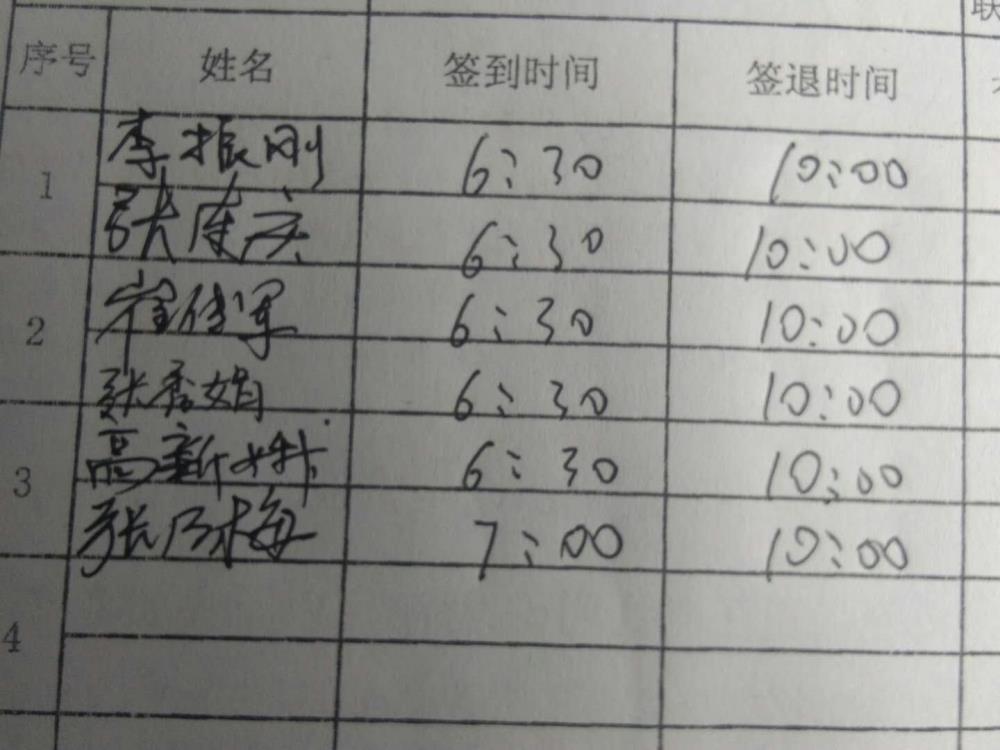 联
序号 姓名 签到时间 签退时间
李振刚 6:30 10:00
1
张 6:30 10:00
崔传军 6:30 10:00
2
张秀娟 6:30 10:00
高新 6:30 10:00
3
张乃梅 7:00 10:00
4